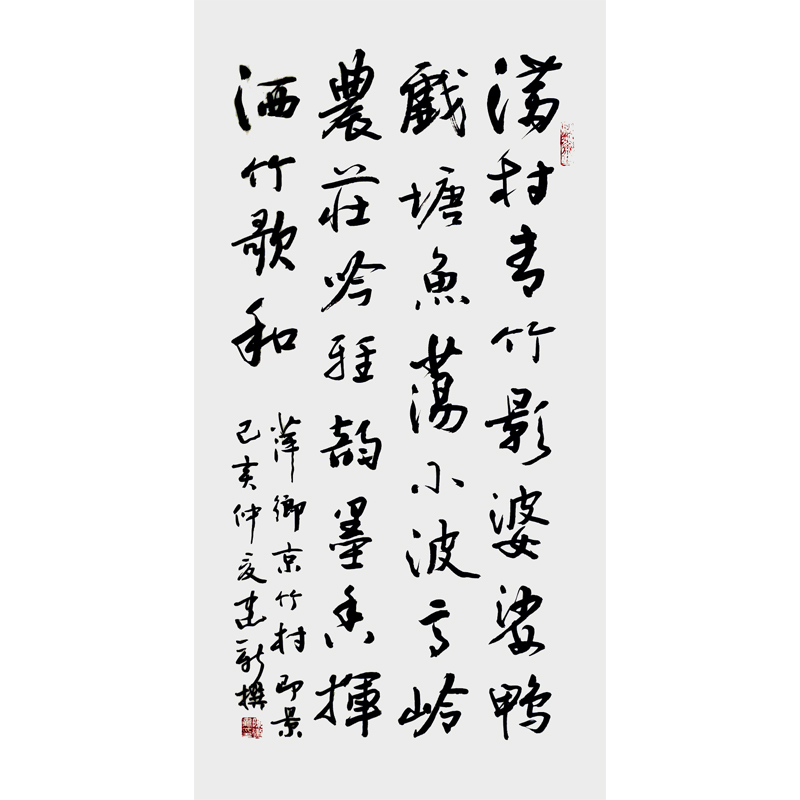 满村青竹影婆娑鴨
戲塘魚蕩小波高岭
農莊吟雅韻墨香揮
洒竹歌和
萍鄉京竹村即景
己亥仲夏新撰